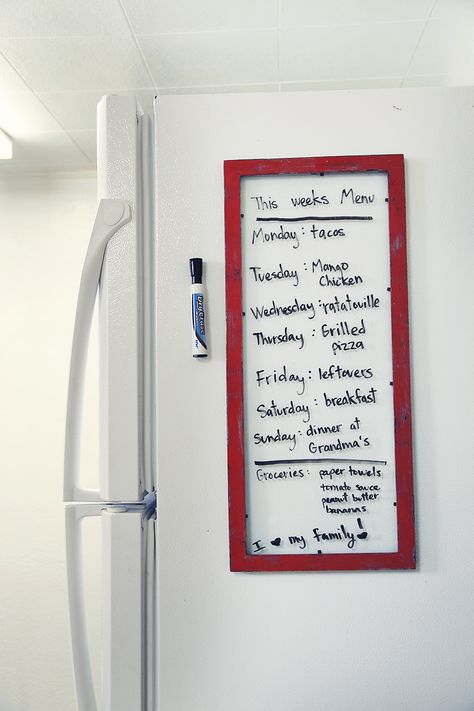 This weeks Menu
Monday: tacos
Tuesday: Mango
Chicken
Wednesday: ratatouille
Thursday: Grilled
pizza
Friday: leftovers
Saturday: breakfast
Sunday: dinner at
Grandma's
Groceries: paper towels
tomato sauce
peanut butter
bananas
I ♥ my family!